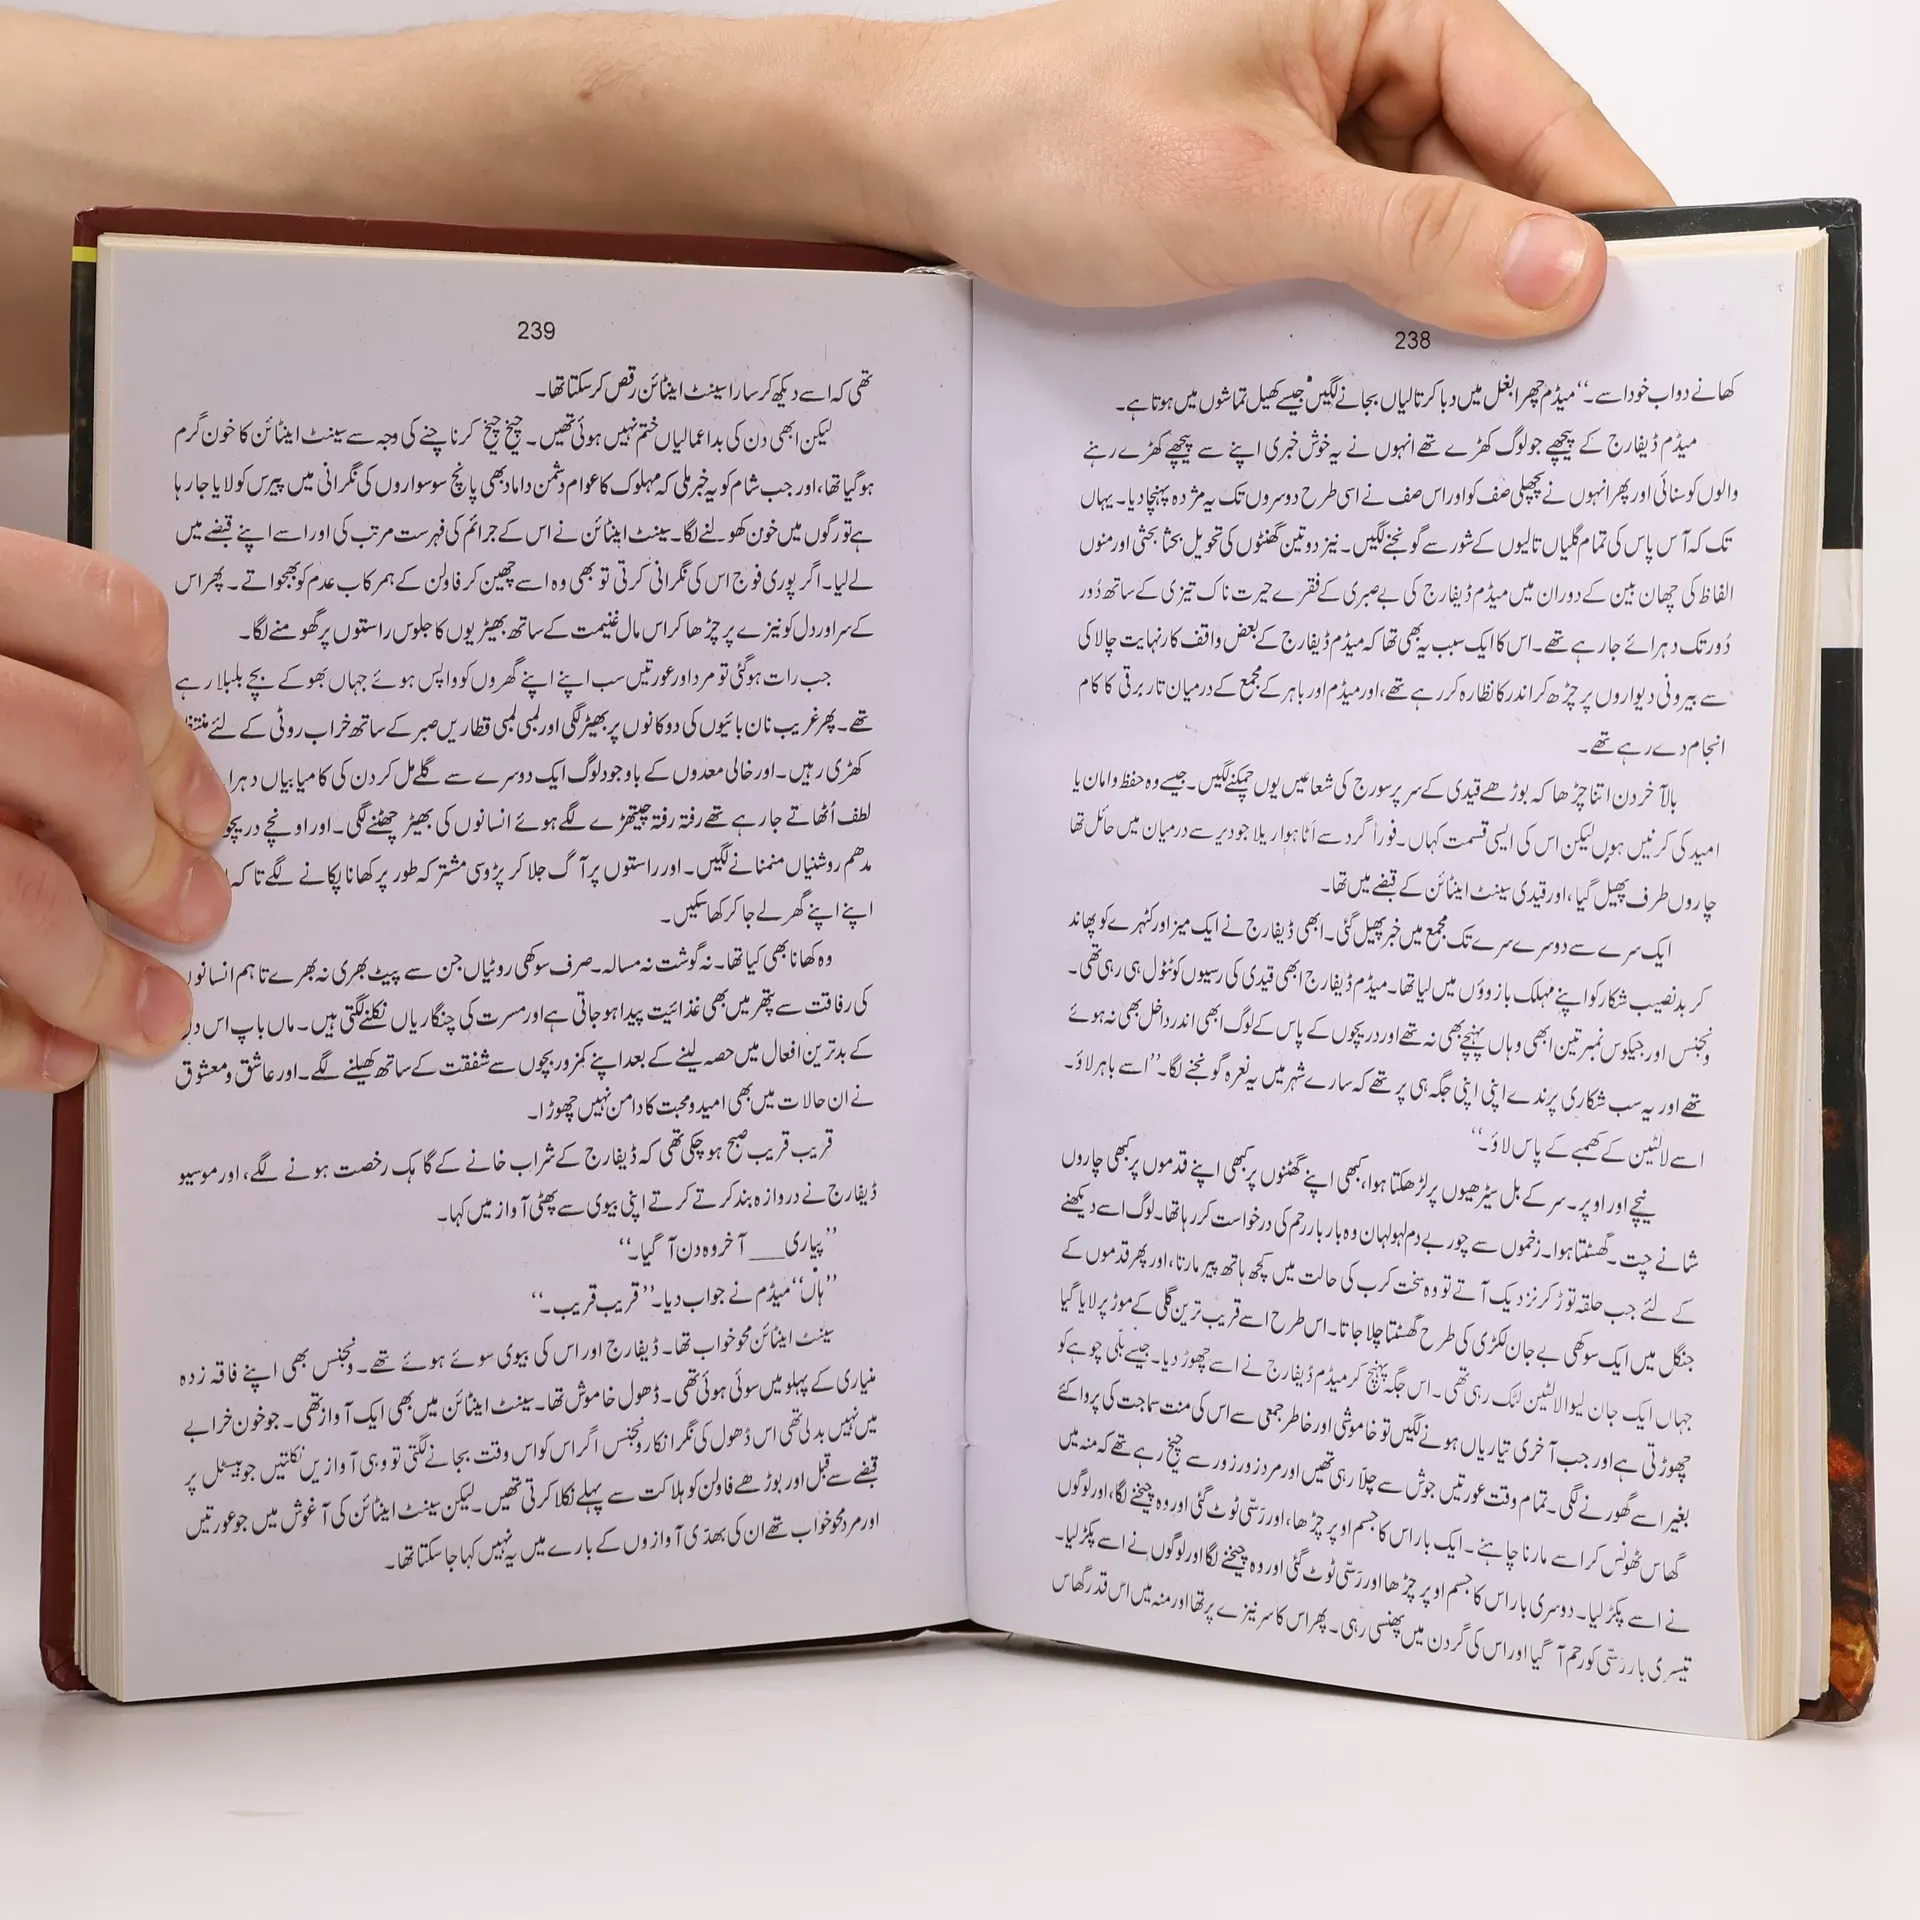 238
کھانے دو اب خود اسے۔‘‘ میڈم چھرا بغل میں دبا کر تالیاں بجانے لگیں جیسے کھیل تماشوں میں ہوتا ہے۔
میڈم ڈیفارج کے پیچھے جو لوگ کھڑے تھے انہوں نے یہ خوش خبری اپنے سے پیچھے کھڑے رہنے
والوں کو سنائی اور پھر انہوں نے پچھلی صف کو اور اس صف نے اسی طرح دوسروں تک یہ مژدہ پہنچا دیا۔ یہاں
تک کہ آس پاس کی تمام گلیاں تالیوں کے شور سے گونجنے لگیں۔ نیز دو تین گھنٹوں کی تحویل بحثا بحثی اور منوں
الفاظ کی چھان بین کے دوران میں میڈم ڈیفارج کی بے صبری کے فقرے حیرت ناک تیزی کے ساتھ دُور
دُور تک دہرائے جا رہے تھے۔ اس کا ایک سبب یہ بھی تھا کہ میڈم ڈیفارج کے بعض واقف کار نہایت چالاکی
سے بیرونی دیواروں پر چڑھ کر اندر کا نظارہ کر رہے تھے، اور میڈم اور باہر کے مجمع کے درمیان تار برقی کا کام
انجام دے رہے تھے۔
بالآخر دن اتنا چڑھا کہ بوڑھے قیدی کے سر پر سورج کی شعاعیں یوں چمکنے لگیں۔ جیسے وہ حفظ و امان یا
امید کی کرنیں ہوں لیکن اس کی ایسی قسمت کہاں۔ فوراً گرد سے اَٹا ہوا ریلا جو دیر سے درمیان میں حائل تھا
چاروں طرف پھیل گیا، اور قیدی سینٹ اینٹائن کے قبضے میں تھا۔
ایک سرے سے دوسرے سرے تک مجمع میں خبر پھیل گئی۔ ابھی ڈیفارج نے ایک میز اور کٹہرے کو پھاند
کر بدنصیب شکار کو اپنے مہلک بازوؤں میں لیا تھا۔ میڈم ڈیفارج ابھی قیدی کی رسیوں کو ٹٹول ہی رہی تھی۔
ونجنس اور جیکوس نمبر تین ابھی وہاں پہنچے بھی نہ تھے اور دریچوں کے پاس کے لوگ ابھی اندر داخل بھی نہ ہوئے
تھے اور یہ سب شکاری پرندے اپنی اپنی جگہ ہی پر تھے کہ سارے شہر میں یہ نعرہ گونجنے لگا۔ ’’اسے باہر لاؤ۔
اسے لالٹین کے کھمبے کے پاس لاؤ۔‘‘
نیچے اور اوپر۔ سر کے بل سیڑھیوں پر لڑھکتا ہوا، کبھی اپنے گھٹنوں پر کبھی اپنے قدموں پر کبھی چاروں
شانے چت۔ گھسٹتا ہوا۔ زخموں سے چور بے دم لہولہان وہ بار بار رحم کی درخواست کر رہا تھا۔ لوگ اسے دیکھنے
کے لئے جب حلقہ توڑ کر نزدیک آتے تو وہ سخت کرب کی حالت میں کچھ ہاتھ پیر مارتا، اور پھر قدموں کے
جنگل میں ایک سوکھی بے جان لکڑی کی طرح گھسٹتا چلا جاتا۔ اس طرح اسے قریب ترین گلی کے موڑ پر لایا گیا
جہاں ایک جان لیوا لالٹین لٹک رہی تھی۔ اس جگہ پہنچ کر میڈم ڈیفارج نے اسے چھوڑ دیا۔ جیسے بلّی چوہے کو
چھوڑتی ہے اور جب آخری تیاریاں ہونے لگیں تو خاموشی اور خاطر جمعی سے اس کی منت سماجت کی پروا کئے
بغیر اسے گھورنے لگی۔ تمام وقت عورتیں جوش سے چلّا رہی تھیں اور مرد زور زور سے چیخ رہے تھے کہ منہ میں
گھاس ٹھونس کر اسے مارنا چاہئے۔ ایک بار اس کا جسم اوپر چڑھا، اور رسّی ٹوٹ گئی اور وہ چیخنے لگا، اور لوگوں
نے اسے پکڑ لیا۔ دوسری بار اس کا جسم اوپر چڑھا اور رسّی ٹوٹ گئی اور وہ چیخنے لگا اور لوگوں نے اسے پکڑ لیا۔
تیسری بار رسّی کو رحم آ گیا اور اس کی گردن میں پھنسی رہی۔ پھر اس کا سر نیزے پر تھا اور منہ میں اس قدر گھاس
239
تھی کہ اسے دیکھ کر سارا سینٹ اینٹائن رقص کر سکتا تھا۔
لیکن ابھی دن کی بداعمالیاں ختم نہیں ہوئی تھیں۔ چیخ چیخ کر ناچنے کی وجہ سے سینٹ اینٹائن کا خون گرم
ہو گیا تھا، اور جب شام کو یہ خبر ملی کہ مہلوک کا عوام دشمن داماد بھی پانچ سو سواروں کی نگرانی میں پیرس کو لایا جا رہا
ہے تو رگوں میں خون کھولنے لگا۔ سینٹ اینٹائن نے اس کے جرائم کی فہرست مرتب کی اور اسے اپنے قبضے میں
لے لیا۔ اگر پوری فوج اس کی نگرانی کرتی تو بھی وہ اسے چھین کر فاولن کے ہمرکاب عدم کو بھجواتے۔ پھر اس
کے سر اور دل کو نیزے پر چڑھا کر اس مال غنیمت کے ساتھ بھیڑیوں کا جلوس راستوں پر گھومنے لگا۔
جب رات ہو گئی تو مرد اور عورتیں سب اپنے اپنے گھروں کو واپس ہوئے جہاں بھوکے بچے بلبلا رہے
تھے۔ پھر غریب نان بائیوں کی دوکانوں پر بھیڑ لگی اور لمبی لمبی قطاریں صبر کے ساتھ خراب روٹی کے لئے
کھڑی رہیں۔ اور خالی معدوں کے باوجود لوگ ایک دوسرے سے گلے مل کر دن کی کامیابیاں
لطف اُٹھاتے جا رہے تھے رفتہ رفتہ چیتھڑے لگے ہوئے انسانوں کی بھیڑ چھٹنے لگی۔ اور اونچے
مدھم روشنیاں منمنانے لگیں۔ اور راستوں پر آگ جلا کر پڑوسی مشترکہ طور پر کھانا پکانے لگے تاکہ
اپنے اپنے گھر لے جا کر کھا سکیں۔
وہ کھانا بھی کیا تھا۔ نہ گوشت نہ مسالہ۔ صرف سوکھی روٹیاں جن سے پیٹ بھری نہ بھرے تاہم
کی رفاقت سے پتھر میں بھی غذائیت پیدا ہو جاتی ہے اور مسرت کی چنگاریاں نکلنے لگتی ہیں۔ ماں باپ اس
کے بدترین افعال میں حصہ لینے کے بعد اپنے کمزور بچوں سے شفقت کے ساتھ کھیلنے لگے۔ اور عاشق و معشوق
نے ان حالات میں بھی امید و محبت کا دامن نہیں چھوڑا۔
قریب قریب صبح ہو چکی تھی کہ ڈیفارج کے شراب خانے کے گاہک رخصت ہونے لگے، اور موسیو
ڈیفارج نے دروازہ بند کرتے کرتے اپنی بیوی سے پھٹی آواز میں کہا۔
’’پیاری___ آخر وہ دن آ گیا۔‘‘
’’ہاں‘‘ میڈم نے جواب دیا۔ ’’قریب قریب۔‘‘
سینٹ اینٹائن محو خواب تھا۔ ڈیفارج اور اس کی بیوی سوئے ہوئے تھے۔ ونجنس بھی اپنے فاقہ زدہ
منیاری کے پہلو میں سوئی ہوئی تھی۔ ڈھول خاموش تھا۔ سینٹ اینٹائن میں بھی ایک آواز تھی۔ جو خون خرابے
میں نہیں بدلی تھی اس ڈھول کی نگرانکار ونجنس اگر اس کو اس وقت بجانے لگتی تو وہی آوازیں نکلتیں جو بیسٹل پر
قبضے سے قبل اور بوڑھے فاولن کو ہلاکت سے پہلے نکلا کرتی تھیں۔ لیکن سینٹ اینٹائن کی آغوش میں جو عورتیں
اور مرد محو خواب تھے ان کی بھدّی آوازوں کے بارے میں یہ نہیں کہا جا سکتا تھا۔